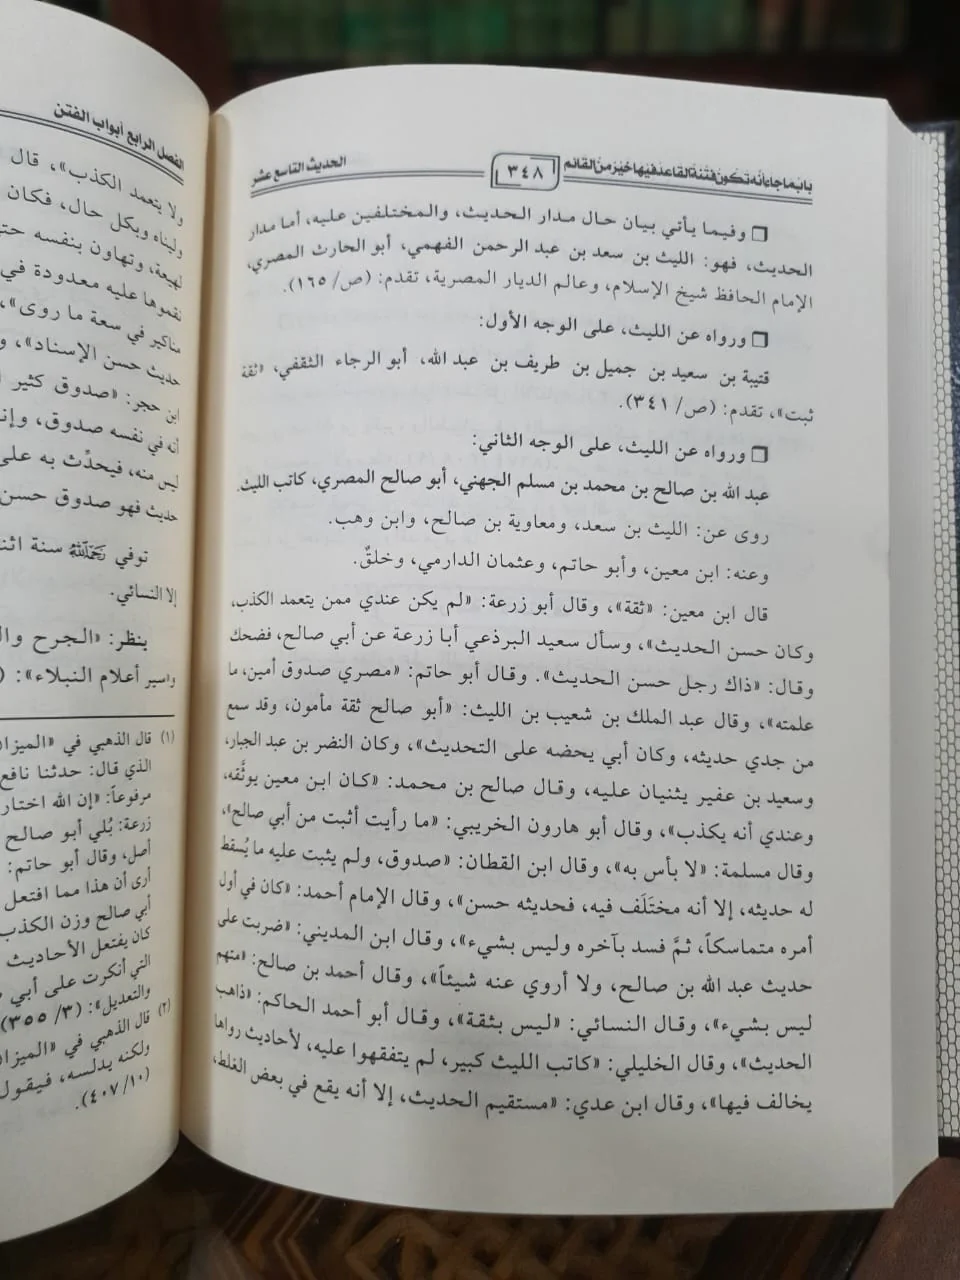 باب ما جاء أنه تكون فتنة القاعد فيها خير من القائم
٣٤٨
الحديث التاسع عشر
❒ وفيما يأتي بيان حال مدار الحديث، والمختلفين عليه، أما مدار
الحديث، فهو: الليث بن سعد بن عبد الرحمن الفهمي، أبو الحارث المصري،
الإمام الحافظ شيخ الإسلام، وعالم الديار المصرية، تقدم: (ص/ ١٦٥).
❒ ورواه عن الليث، على الوجه الأول:
قتيبة بن سعيد بن جميل بن طريف بن عبد الله، أبو الرجاء الثقفي، «ثقة
ثبت»، تقدم: (ص/ ٣٤١).
❒ ورواه عن الليث، على الوجه الثاني:
عبد الله بن صالح بن محمد بن مسلم الجهني، أبو صالح المصري، كاتب الليث.
روى عن: الليث بن سعد، ومعاوية بن صالح، وابن وهب.
وعنه: ابن معين، وأبو حاتم، وعثمان الدارمي، وخلقٌ.
قال ابن معين: «ثقة»، وقال أبو زرعة: «لم يكن عندي ممن يتعمد الكذب،
وكان حسن الحديث»، وسأل سعيد البرذعي أبا زرعة عن أبي صالح، فضحك
وقال: «ذاك رجل حسن الحديث». وقال أبو حاتم: «مصري صدوق أمين، ما
علمته»، وقال عبد الملك بن شعيب بن الليث: «أبو صالح ثقة مأمون، وقد سمع
من جدي حديثه، وكان أبي يحضه على التحديث»، وكان النضر بن عبد الجبار،
وسعيد بن عفير يثنيان عليه، وقال صالح بن محمد: «كان ابن معين يوثَّقه،
وعندي أنه يكذب»، وقال أبو هارون الخريبي: «ما رأيت أثبت من أبي صالح»،
وقال مسلمة: «لا بأس به»، وقال ابن القطان: «صدوق، ولم يثبت عليه ما يُسقط
له حديثه، إلا أنه مختَلَف فيه، فحديثه حسن»، وقال الإمام أحمد: «كان في أول
أمره متماسكاً، ثمَّ فسد بآخره وليس بشيء»، وقال ابن المديني: «ضربت على
حديث عبد الله بن صالح، ولا أروي عنه شيئاً»، وقال أحمد بن صالح: «متهم
ليس بشيء»، وقال النسائي: «ليس بثقة»، وقال أبو أحمد الحاكم: «ذاهب
الحديث»، وقال الخليلي: «كاتب الليث كبير، لم يتفقهوا عليه، لأحاديث رواها
يخالف فيها»، وقال ابن عدي: «مستقيم الحديث، إلا أنه يقع في بعض الغلط،
الفصل الرابع أبواب الفتن
ولا يتعمد الكذب»، قال
وليناه وبكل حال، فكان
لهيعة، وتهاون بنفسه حتى
نقموها عليه معدودة في
مناكير في سعة ما روى»،
حديث حسن الإسناد»،
ابن حجر: «صدوق كثير
أنه في نفسه صدوق،
ليس منه، فيحدِّث به على
حديث فهو صدوق حسن
توفي رحمه الله سنة
إلا النسائي.
ينظر: «الجرح
و«سير أعلام النبلاء»:
(١) قال الذهبي في «الميزان
الذي قال: حدثنا نافع
مرفوعاً: «إن الله اختار
زرعة: بُلي أبو صالح
أصل، وقال أبو حاتم:
أرى أن هذا مما افتعل
أبي صالح وزن الكذب
كان يفتعل الأحاديث
التي أنكرت على أبي
والتعديل»: (٣/ ٣٥٥)
(٢) قال الذهبي في «الميزان
ولكنه يدلسه، فيقول
(١٠/ ٤٠٧).